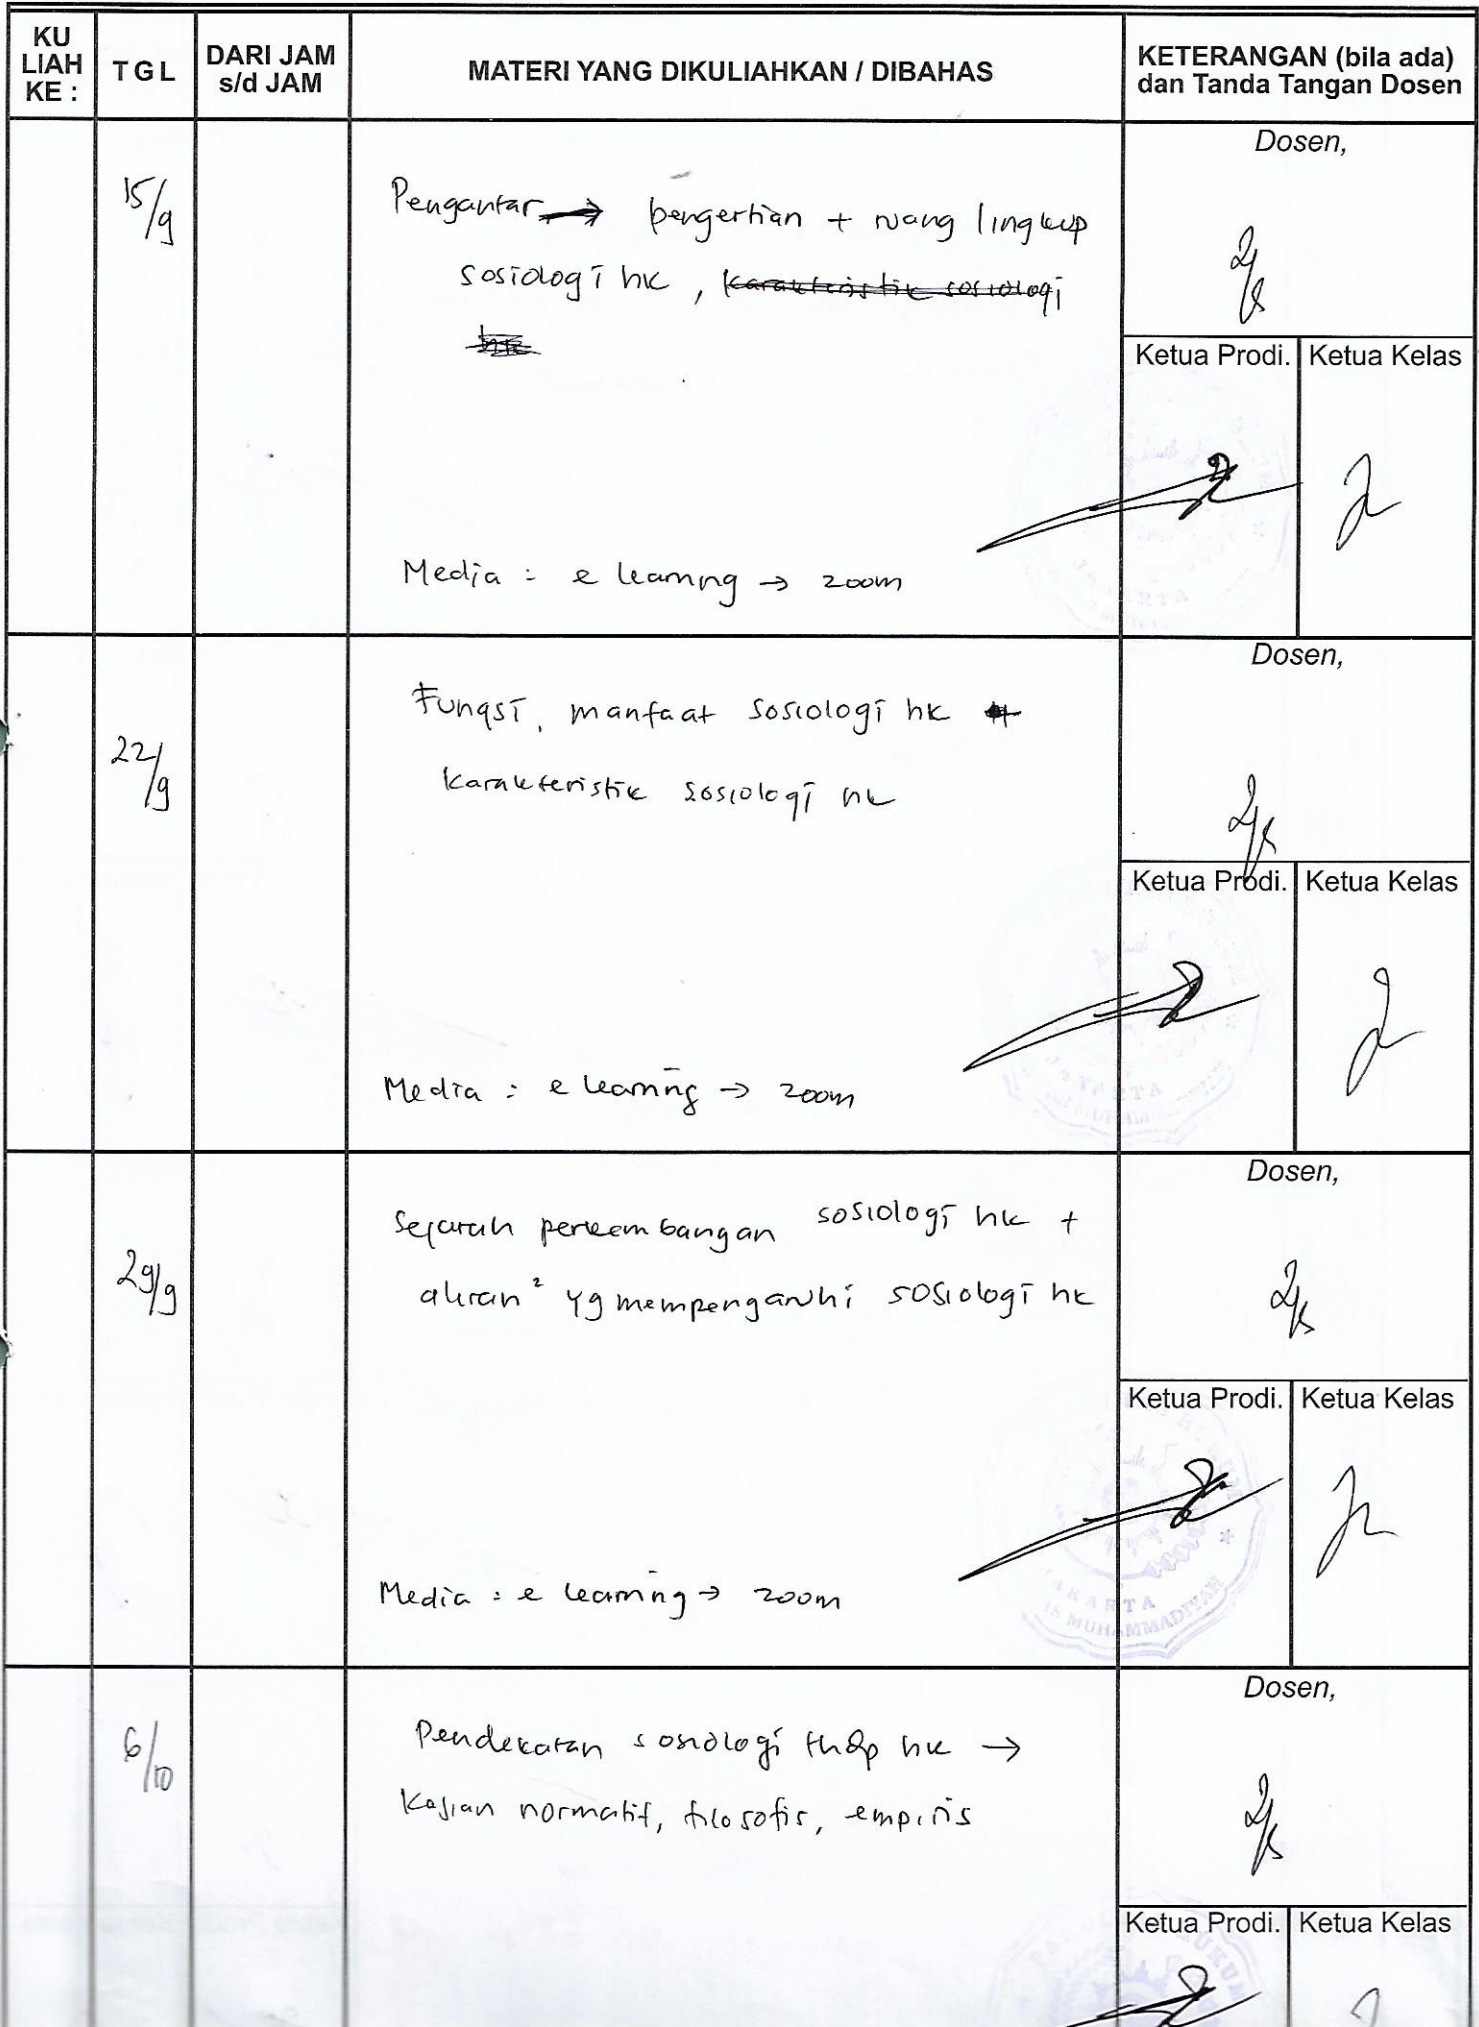 KU LIAH KE :
TGL
DARI JAM s/d JAM
MATERI YANG DIKULIAHKAN / DIBAHAS
KETERANGAN (bila ada) dan Tanda Tangan Dosen
15/9
Pengantar → pengertian + ruang lingkup
sosiologi hk, karakteristik sosiologi
hk
Media : e learning → zoom
Dosen,
Ketua Prodi.
Ketua Kelas
22/9
Fungsi, manfaat sosiologi hk
karakteristik sosiologi hk
Media : e learning → zoom
Dosen,
Ketua Prodi.
Ketua Kelas
29/9
Sejarah perkembangan sosiologi hk +
aliran² yg mempengaruhi sosiologi hk
Media : e learning → zoom
Dosen,
Ketua Prodi.
Ketua Kelas
JAKARTA
MUHAMMADIYAH
6/10
Pendekatan sosiologi thdp hk →
Kajian normatif, filosofis, empiris
Dosen,
Ketua Prodi.
Ketua Kelas